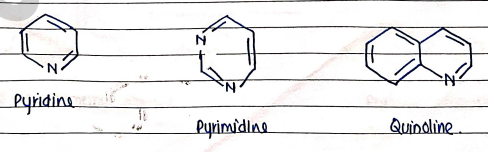 N
N
N
N
Pyridine
Pyrimidine
Quinoline.